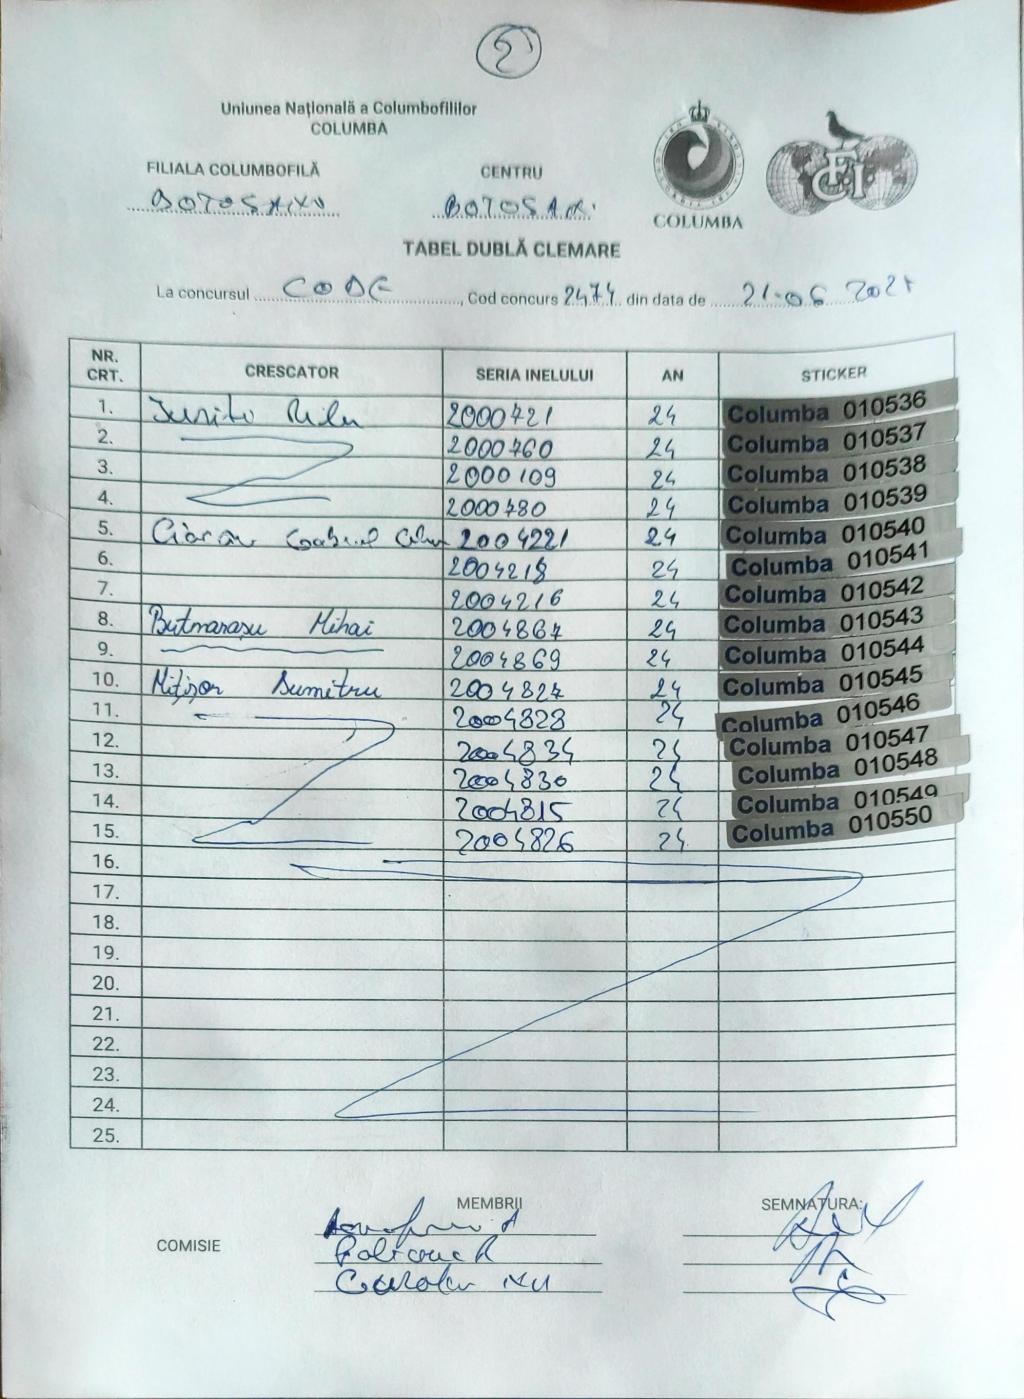 5
Uniunea Naţională a Columbofililor
COLUMBA
FILIALA COLUMBOFILĂ
CENTRU
BOTOSANI
BOTOSANI
COLUMBA
FCI
TABEL DUBLĂ CLEMARE
La concursul CODE, Cod concurs 2474 din data de 21.06 2025
NR. CRT. CRESCATOR SERIA INELULUI AN STICKER
1. 2000721 24 Columba 010536
2. 2000760 24 Columba 010537
3. 2000109 24 Columba 010538
4. 2000780 24 Columba 010539
5. 2004221 24 Columba 010540
6. 2004218 24 Columba 010541
7. 2004216 24 Columba 010542
8. Butnarasu Mihai 2004867 24 Columba 010543
9. 2004869 24 Columba 010544
10. Mițișor Dumitru 2004827 24 Columba 010545
11. 2004828 24 Columba 010546
12. 2004834 24 Columba 010547
13. 2004830 24 Columba 010548
14. 2004815 24 Columba 010549
15. 2004826 24 Columba 010550
16.
17.
18.
19.
20.
21.
22.
23.
24.
25.
MEMBRII
SEMNATURA:
COMISIE